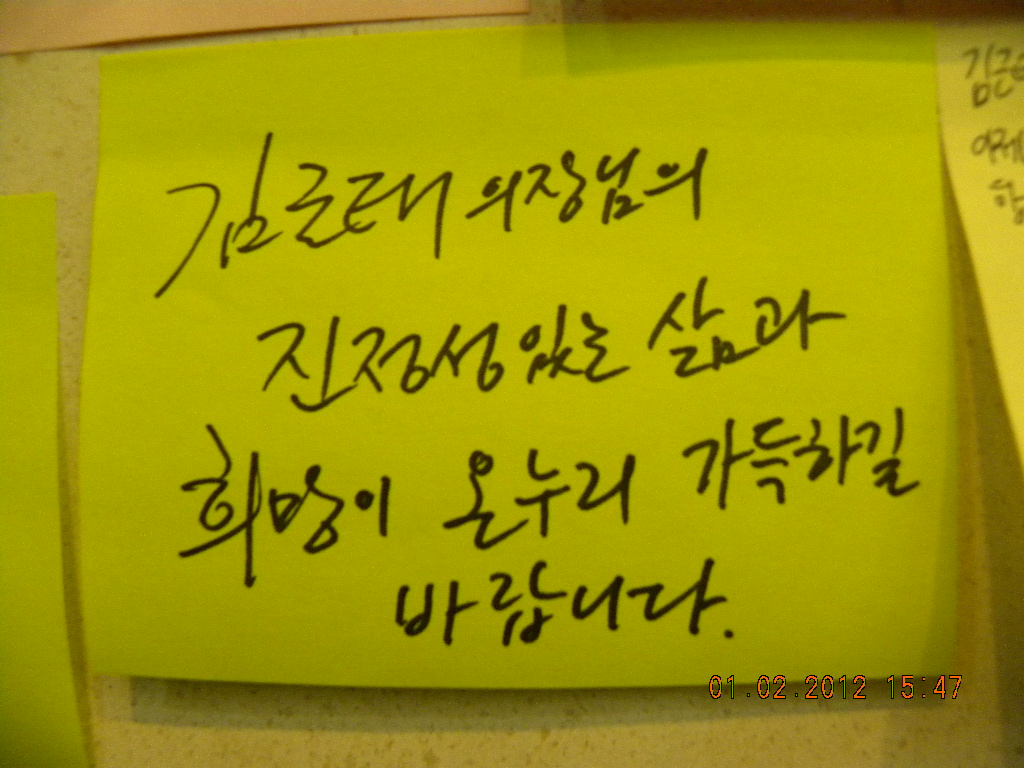 김근태 의장님의
진정성있는 삶과
희망이 온누리 가득하길
바랍니다.
김근
이제
01.02.2012 15:47